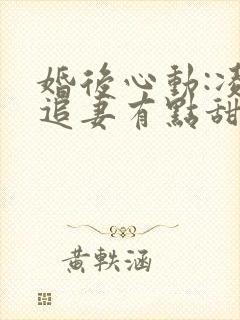 婚後心動:凌
追妻有點甜
黃軼涵